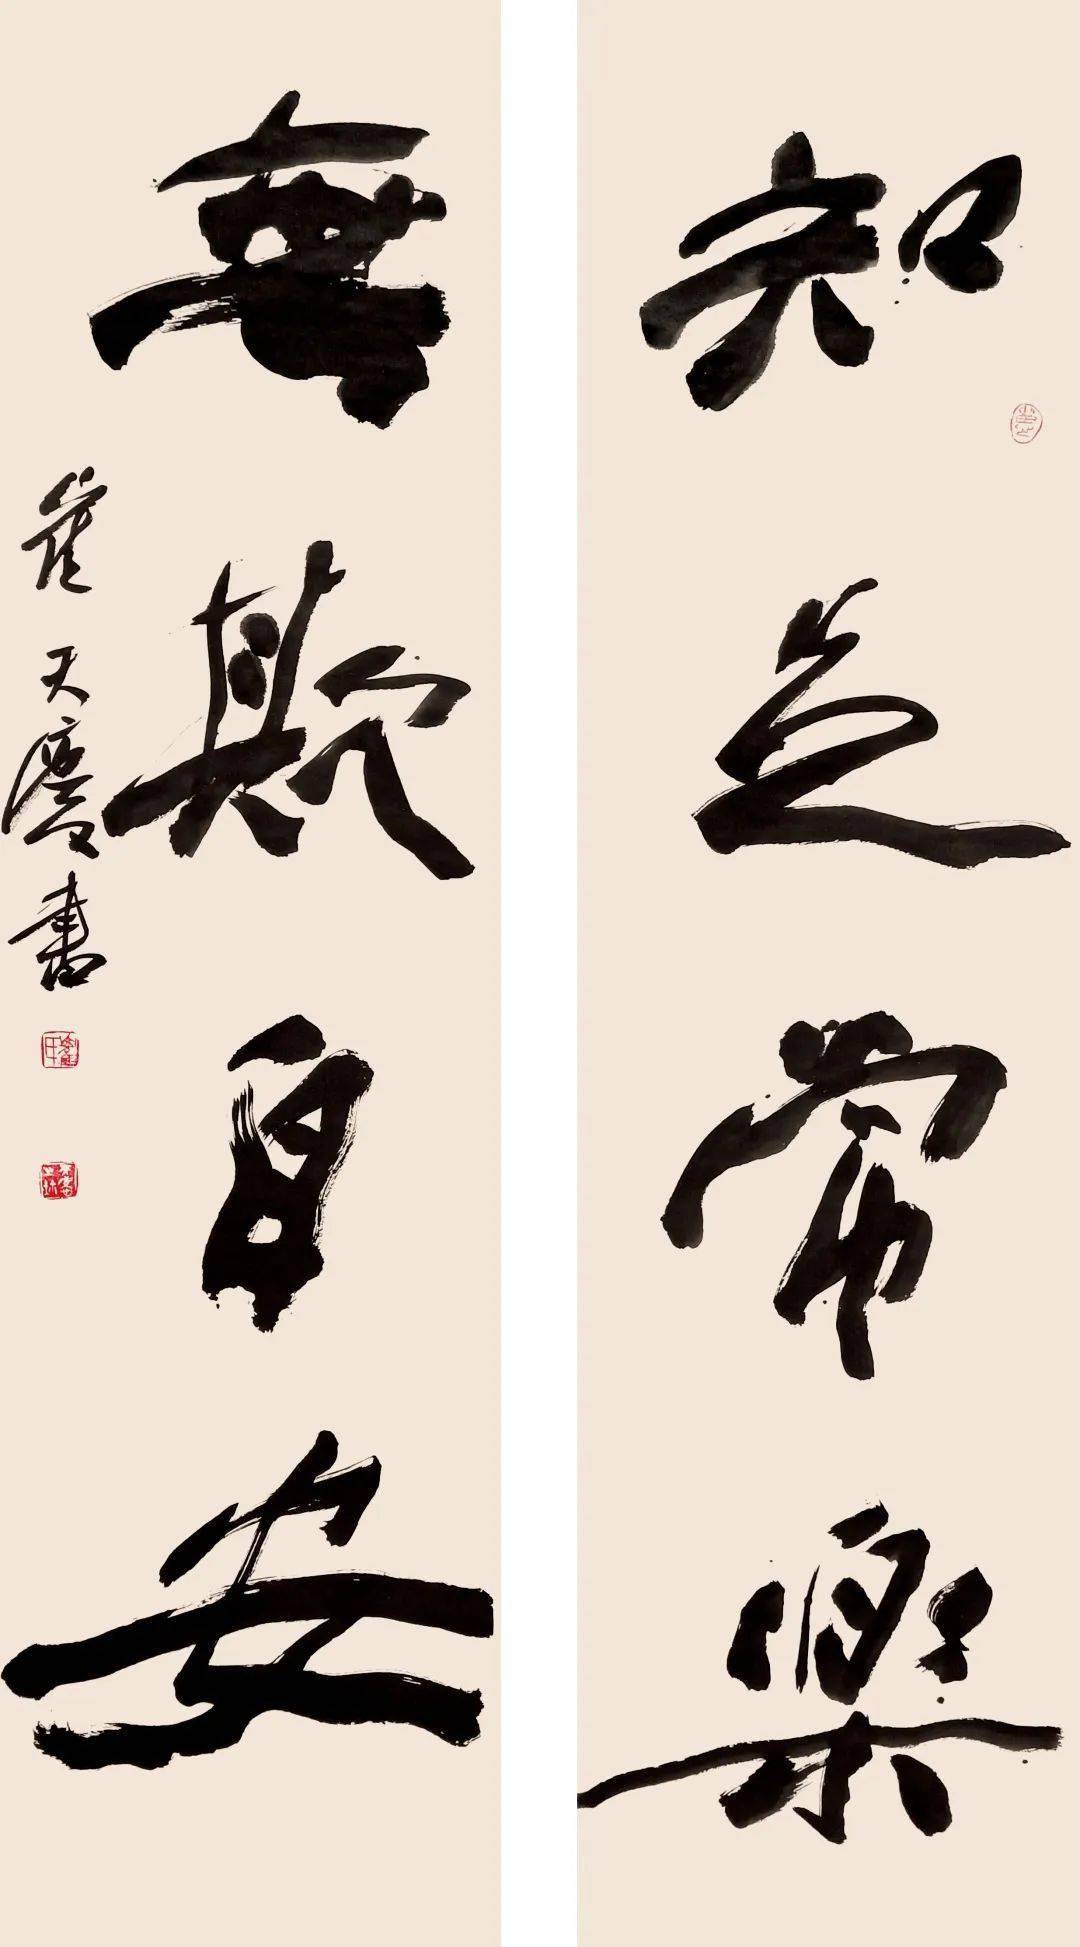 知足常樂
無欺自安
崔天慶書